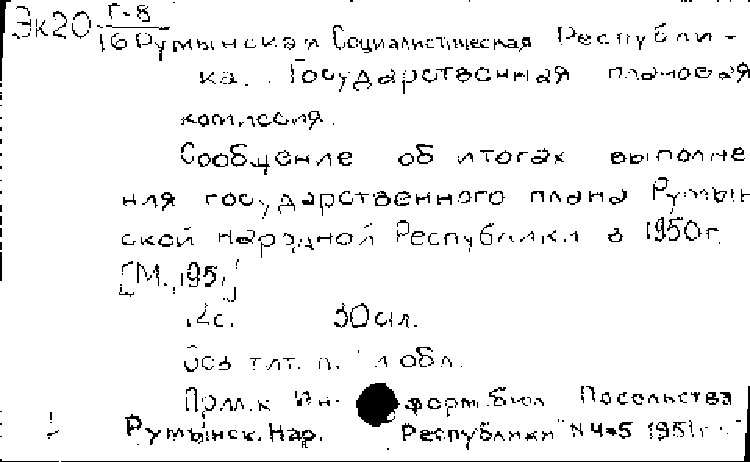 Эк20 Г-8
16 Румынская Социалистическая Республи-
ка. Государственная плановая
комиссия.
Сообщение об итогах выполне
ния государственного плана Румын
ской Народной Республики в 1950г.
[М., 1951]
12с. 30см.
без тит. л. и обл.
Прил. к Ин- форм. бюл. Посольства
Румынск. Нар. Республики" N 4-5 1951г.